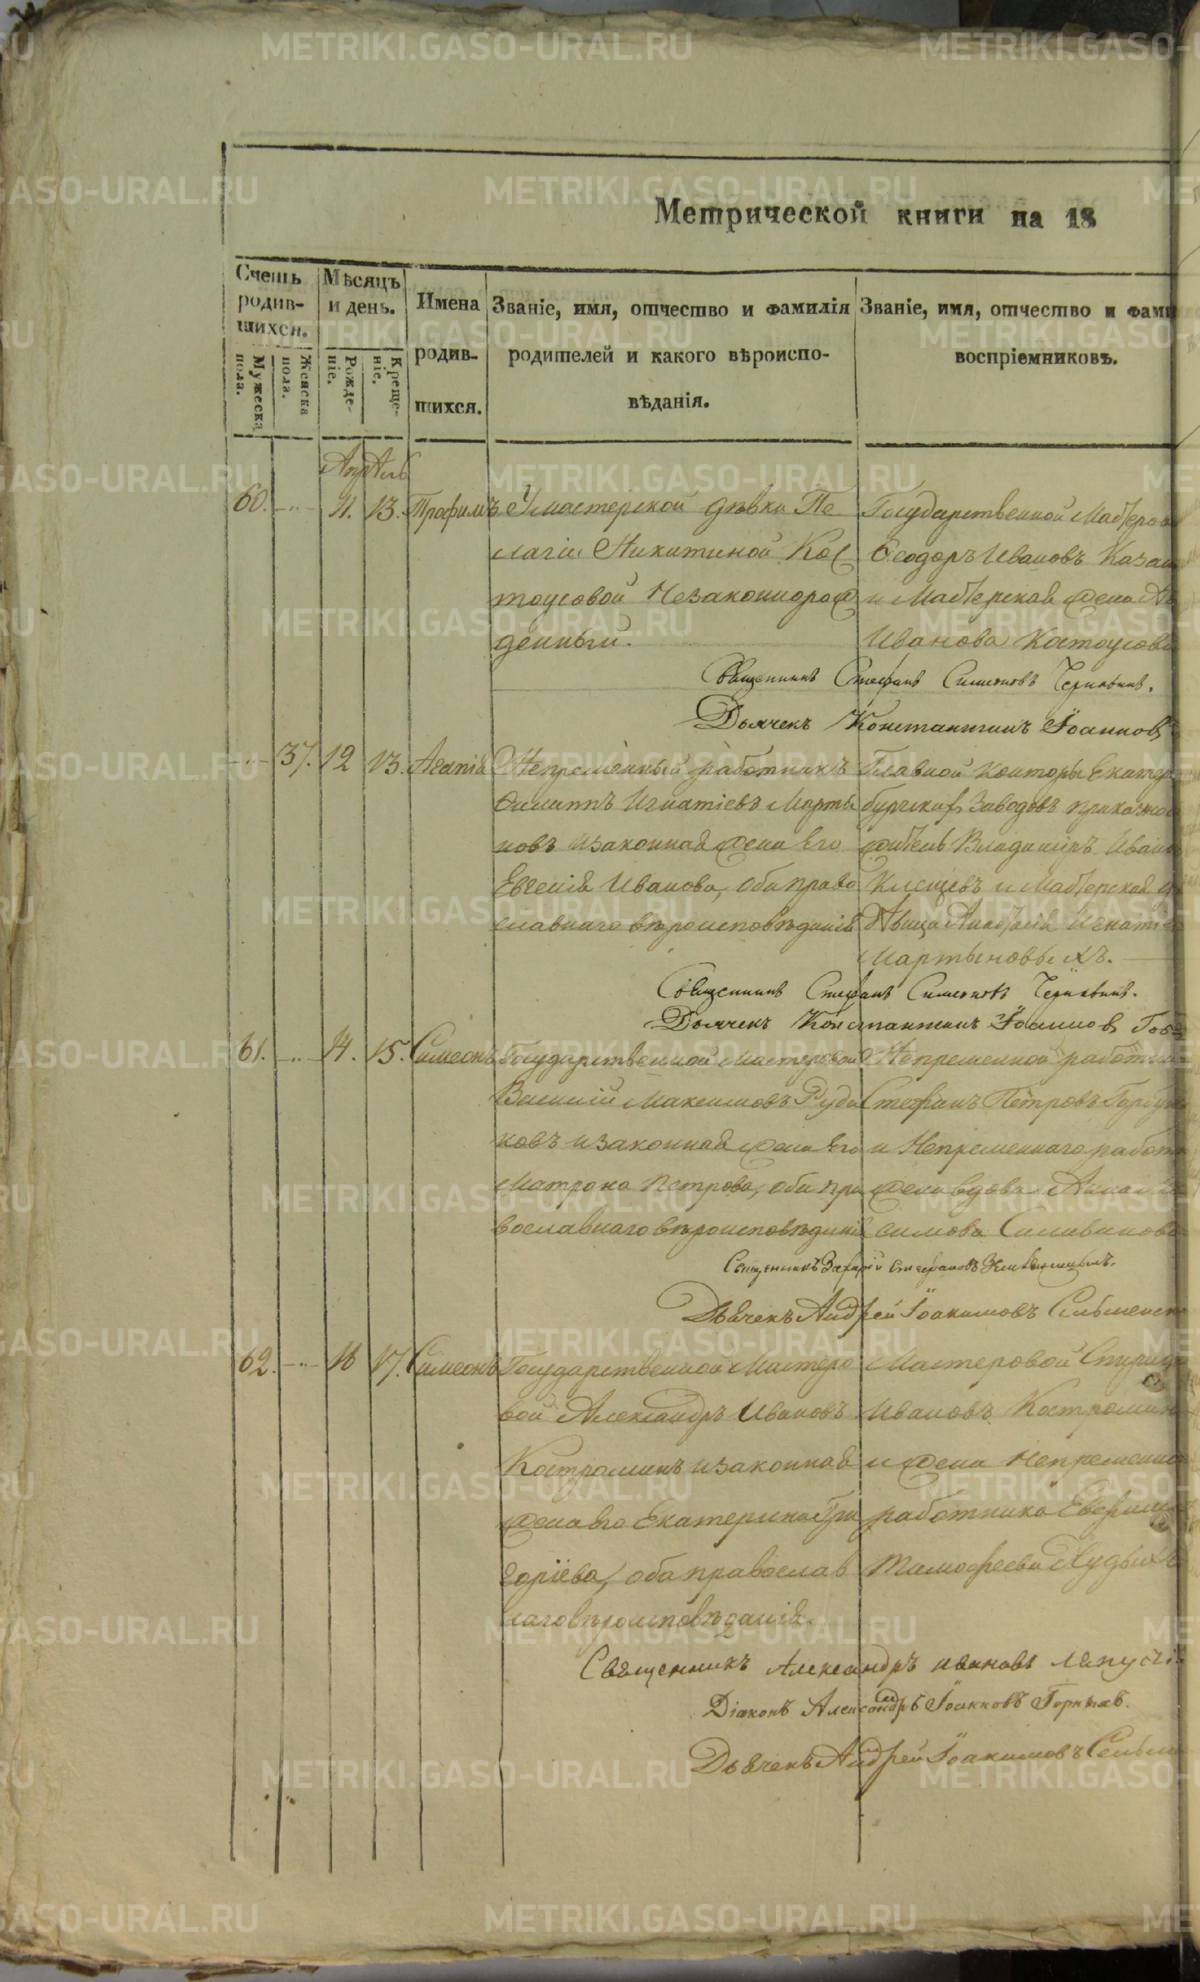 Метрической книги на 18
Счетъ родив- шихся.
Мѣсяцъ и день.
Имена родив- шихся.
Званіе, имя, отчество и фамилія родителей и какого вѣроиспо- вѣданія.
Званіе, имя, отчество и фами воспріемниковъ.
Мужеска пола.
Женска пола.
Рожде- ніе.
Креще- ніе.
Апрѣль
60. 11. 13. Трофимъ У мастерской дѣвки Пе
лагіи Никитиной Кос
тоусовой Незаконнорож
денный.
Государственной Мастеров
Ѳеодоръ Ивановъ Казан
и Мастерская жена
Иванова Костоусова
Священникъ Стефанъ Симеоновъ
Дьячекъ Константинъ Іоанновъ
37. 12 13. Непремѣнный работникъ
Филиппъ Игнатіевъ Марты
новъ изаконная жена Его
Евгенія Иванова, оба право
славнаго вѣроисповѣданія
Главной Конторы Екатер
бургских Заводовъ
Владиміръ Иван
и Мастерская
Игнатіе
Мартыновыхъ.
Священникъ Стефанъ Симеоновъ
Дьячекъ Константинъ Іоаннов
61. 14. 15. Симеонъ Государственной мастеровой
Василій Максимовъ Руда
ковъ изаконная жена Его
Матрона Петрова, оба пра
вославнаго вѣроисповѣданія
Непременной работни
Стефанъ Петровъ
и Непременнаго работн
жена вдова Анна
симова Селиванова
Священникъ Захарій Стефановъ
Дьячекъ Андрей Іоакимовъ
62. 16 17. Симеонъ Государственной Мастеро
вой Александръ Ивановъ
Костроминъ изаконная
жена его Екатерина Гри
горіева, оба православ
наго вѣроисповѣданія.
Мастеровой Спирид
Ивановъ Костромин
и жена Непременно
работника Евфими
Тимофеева Худых
Священникъ Александръ Ивановъ
Діаконъ Александръ Іоанновъ
Дьячекъ Андрей Іоакимовъ
METRIKI.GASO-URAL.RU